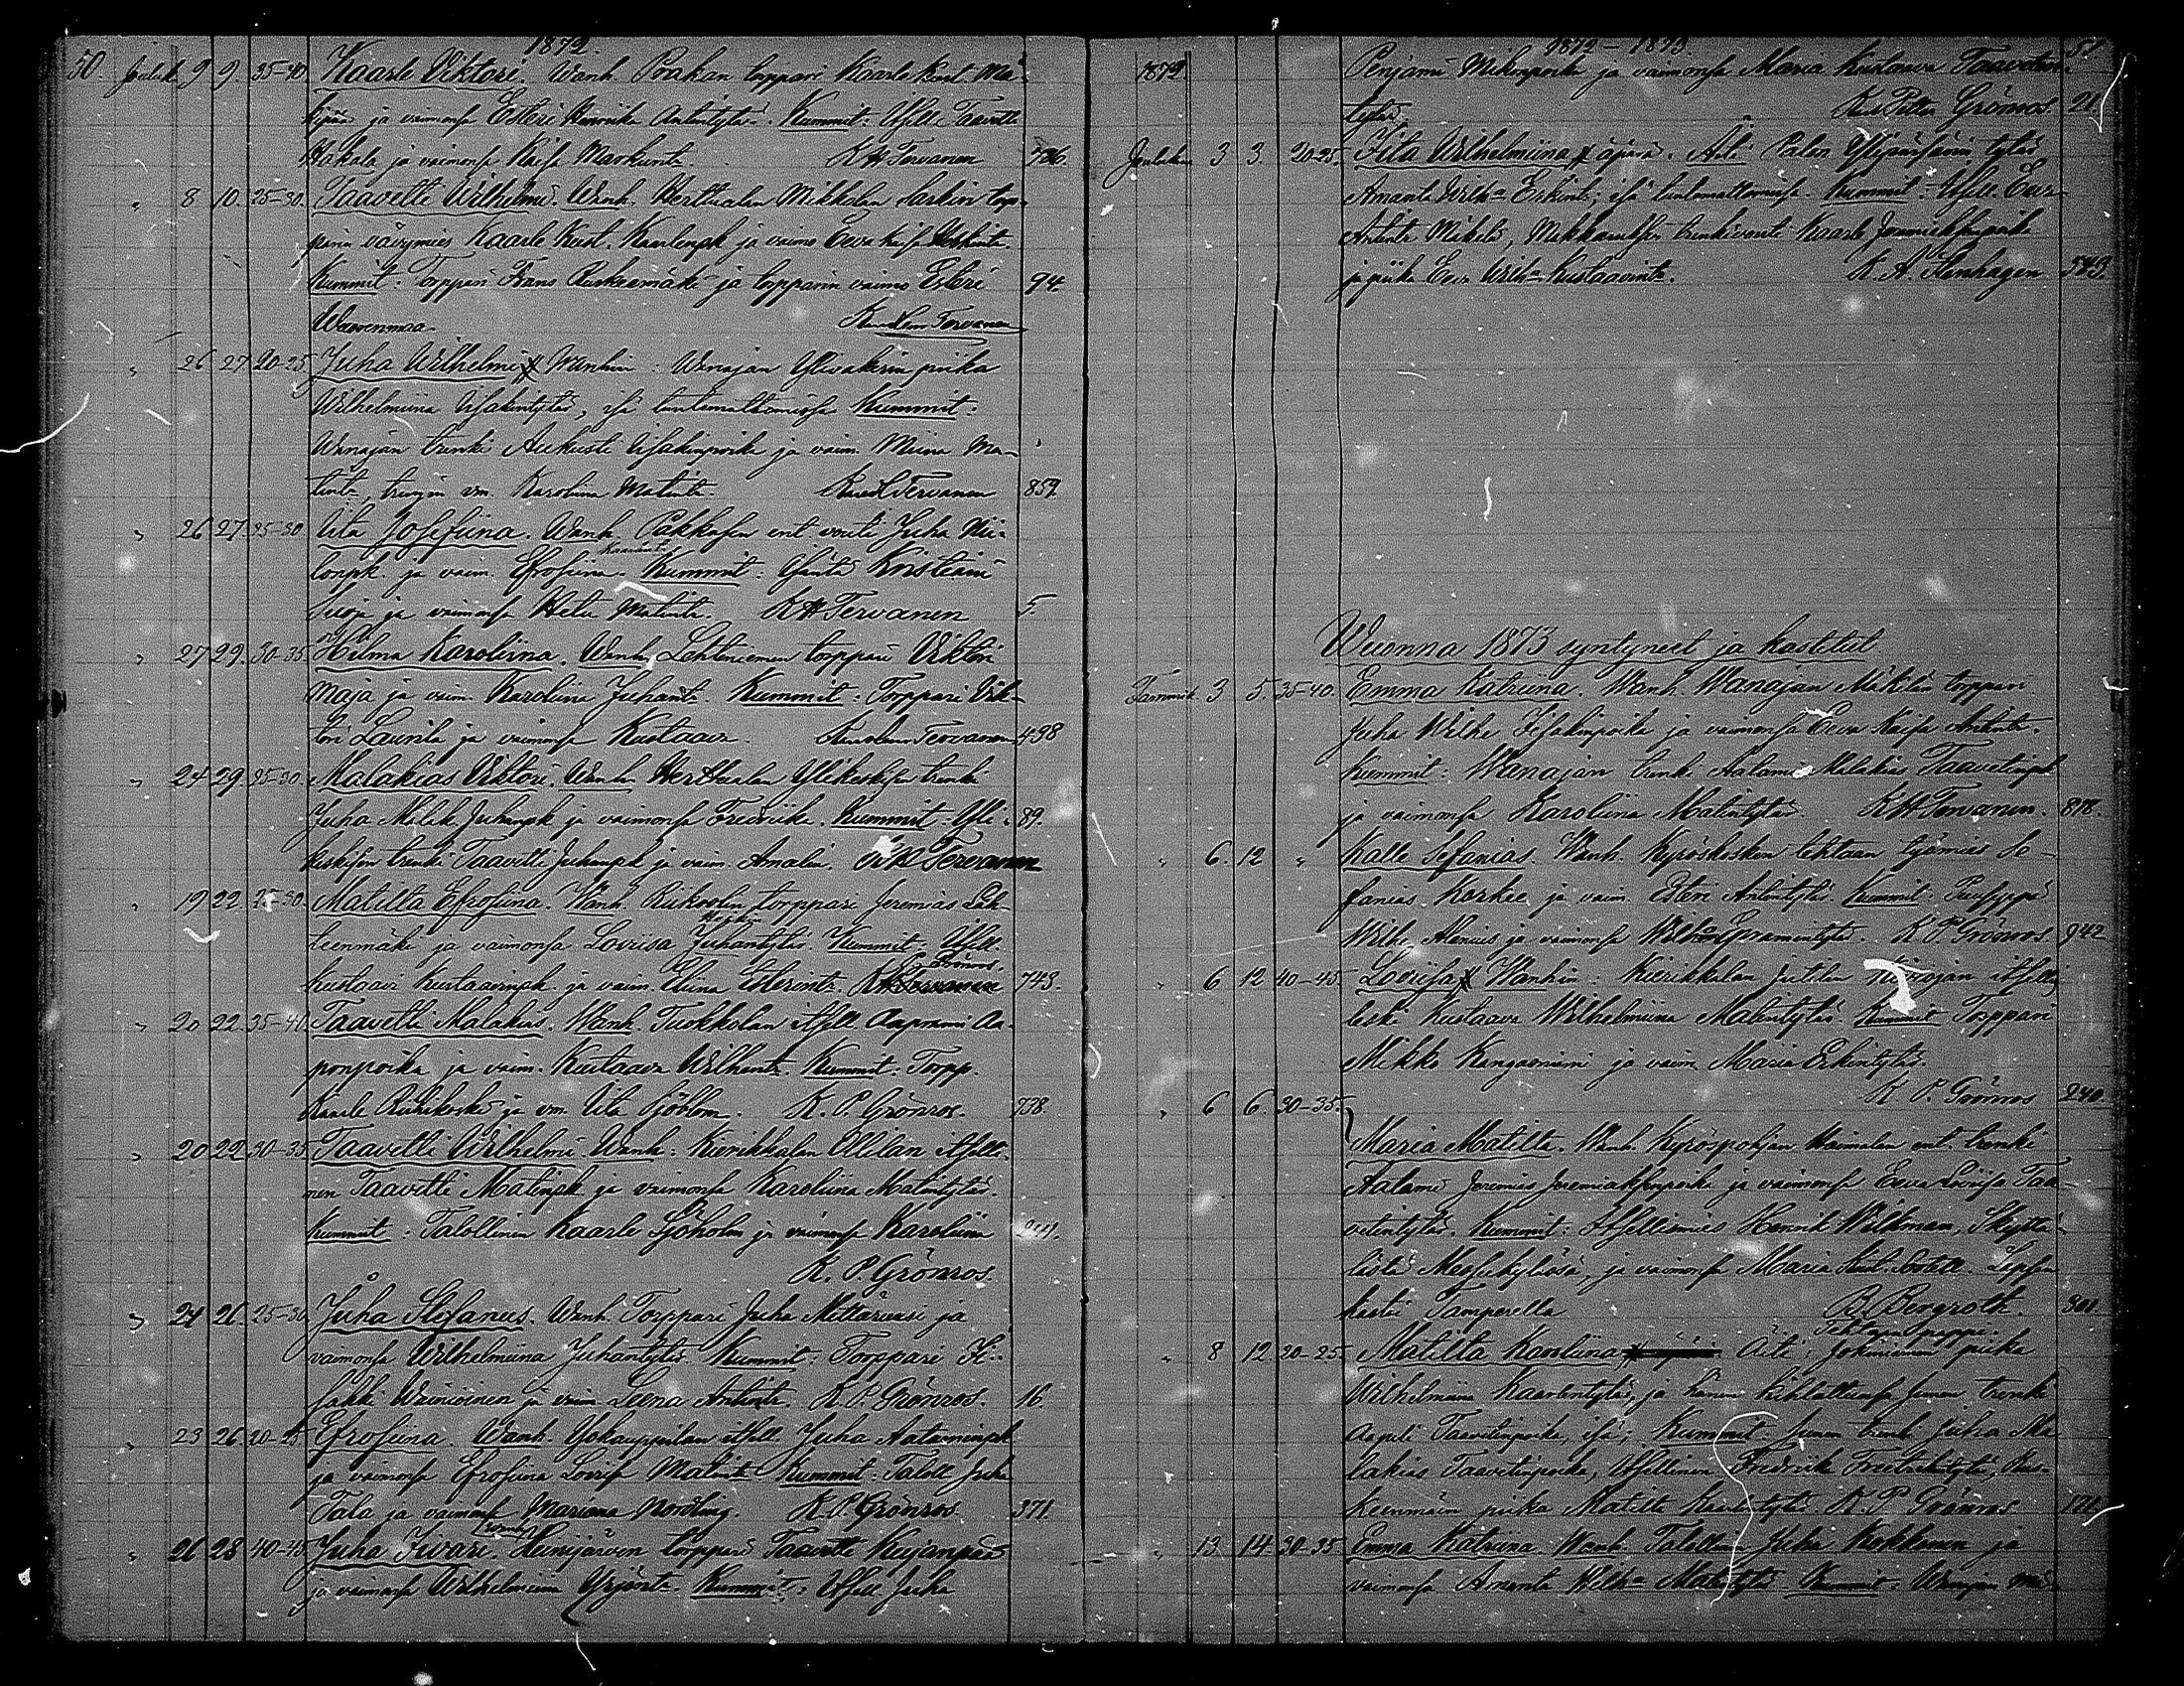 1872.
50. Joulek. 9 9. 35-40 Kaarle Viktori. Wanh. Poakan torppari Kaarle Kust. Mä-
kipää ja vaimonsa Esteri Henriika Antintytär. Kummit: Itsell. Taavetti
Hakala ja vaimonsa Kaisa Markunt. K H Tervanen 786.
" 8 10. 25-30. Taavetti Wilhelmi. Wanh. Herttualan Mikkolan Sarkin torp-
parin vävymies Kaarle Kust. Kaarlenpk ja vaimo Eeva Kaisa
Kummit: Torppari Frans Ruskeemäki ja torpparin vaimo Esteri 94.
Wuorenmaa. Tervanen
" 26 27 20-25 Juha Wilhelmi Wanhin: Wanajan Ylivakerin piika
Wilhelmiina Iisakintytär, isä tuntemattomissa Kummit:
Wanajan trenki Aukusti Iisakinpoika ja vaim. Miina Ma-
tint., trengin vm. Karoliina Matint. Tervanen 859.
" 26 27 25-30 Iita Josefiina. Wanh. Pakkasen ent. vouti Juha Nii-
lonpk. ja vaim. Efrosiina. Kummit: Isäntä Kristiani
Suoja ja vaimonsa Hetu Matint. K H Tervanen 5.
" 27 29. 30-35 Hilma Karoliina. Wanh. Lehtiniemen torppari Viktori
Maja ja vaim. Karoliina Juhant. Kummit: Torppari Vik-
tori Laurila ja vaimonsa Kustaava. Tervanen 498
" 24 29. 25-30. Malakias Viktori. Wanh. Herttualan Ylikeskisen trenki
Juha Malak. Juhanpk ja vaimonsa Fredriika. Kummit: Yli- 89.
keskisen trenki Taavetti Juhanpk ja vaim. Amalia. K H Tervanen
" 19 22 25-30. Matilta Efrosiina. Wanh. Riikoslin torppari Jeremias Läh-
teenmäki ja vaimonsa Loviisa Juhantytär. Kummit: Itsell.
Kustaavi Kustaavinpk. ja vaim. Eliina K P Grönros. 743.
" 20 22. 35-40 Taavetti Malakias. Wanh. Tuokkolan itsell. Aaprami Aa-
ponpoika ja vaim. Kustaava Wilhent. Kummit: Torpp.
Kaarle Riihikoski ja vm. Iita Sjöblom. K. P. Grönros. 738.
" 20 22 30-35 Taavetti Wilhelmi. Wanh: Kierikkalan Ollilan itselli-
nen Taavetti Matinpk ja vaimonsa Karoliina Matintytär.
Kummit: Talollinen Kaarle Sjöholm ja vaimonsa Karoliina
K. P. Grönros.
" 24 26. 25-30 Juha Stefanus. Wanh. Torppari Juha Mettäruusi ja
vaimonsa Wilhelmiina Juhantytär. Kummit: Torppari Ii-
sakki Wainioinen ja vaim. Leena Antint. K. P. Grönros. 16.
" 23 26 20-25 Efrosiina. Wanh. Yokauppilan itsell. Juha Aataminpk
ja vaimonsa Efrosiina Loviisa Matint. Kummit: Taloll. Juha
Tala ja vaimonsa Mariana Nordling. K. P. Grönros. 371.
" 26 28 40-45 Juha Iivari. Wanh. Heinijärven torppari Taavetti Kujanpää
ja vaimonsa Wilhelmiina Yrjönt. Kummit: Itsell. Juha
1872 - 1873. 51
1872 Penjami Mikonpoika ja vaimonsa Maria Kustaava Taavetin-
tytär. Grönros. 21
Jouluk. 3 3. 20-25. Fiita Wilhelmiina äpärä. Äiti Palon Ylijärvän tytär
Amanta Wilh. Erkint; isä tuntemattomissa. Kummit: Itsell. Eer.
Antint. Mäkelä, Mekkamaksen trenkivouti Kaarle Jeremiaksenpoika
ja piika Eeva Wilh. Kustaavint. K. A. Stenhagen 543.
Wuonna 1873 syntyneet ja kastetut
Tammik. 3 5. 35-40. Emma Katriina. Wanh. Wanajan Mäkelän torppari
Juha Wilhe Iisakinpoika ja vaimonsa Eeva Kaisa Antint.
Kummit: Wanajan trenki Aatami Malakias Taavetinpk
ja vaimonsa Karoliina Matintytär. K H Tervanen. 878.
" 6. 12 " Kalle Sefanias. Wanh. Kyröskosken tehtaan työmies Se-
fanias Korkee ja vaim. Esteri Antintytär. Kummit: Puuseppä
Wilhe Alenius ja vaimonsa Wilh. Epramintytär. K P. Grönros. 942
" 6 12 40-45 Loviisa Wanhin. Kierikkalan Jutilan itsellis
leski Kustaava Wilhelmiina Matintytär. Kummit Torppari
Mikko Kangasniemi ja vaim. Maria Erkintytär.
K P. Grönros 240.
" 6 6. 30-35. Maria Matilta. Wanh. Kyröspohjan Haimalan ent. trenki
Aatami Jeremias Jeremiaksenpoika ja vaimonsa Eeva Loviisa Taa-
vetintytär. Kummit: Itsellismies Henrik Wilkman,
ja vaimonsa Maria
kastu Tamperella B. Bergroth. 301.
Tehtaan pappi.
" 8 12 20-25 Matilta Karoliina Äiti: Jokiniemen piika
Wilhelmiina Kaarlentytär, ja hänen kihlattunsa Junen trenki
Aapeli Taavetinpoika, isä; Kummit: Junen trenki Juha Ma-
lakias Taavetinpoika, Itsellinen Fredriika
piika Matilta K. P Grönros 121
" 13 14 30-35 Emma Katriina. Wanh. Talollinen Juha Kokkonen ja
vaimonsa Amanta Wilh. Matintytär. Kummit: Wanajan